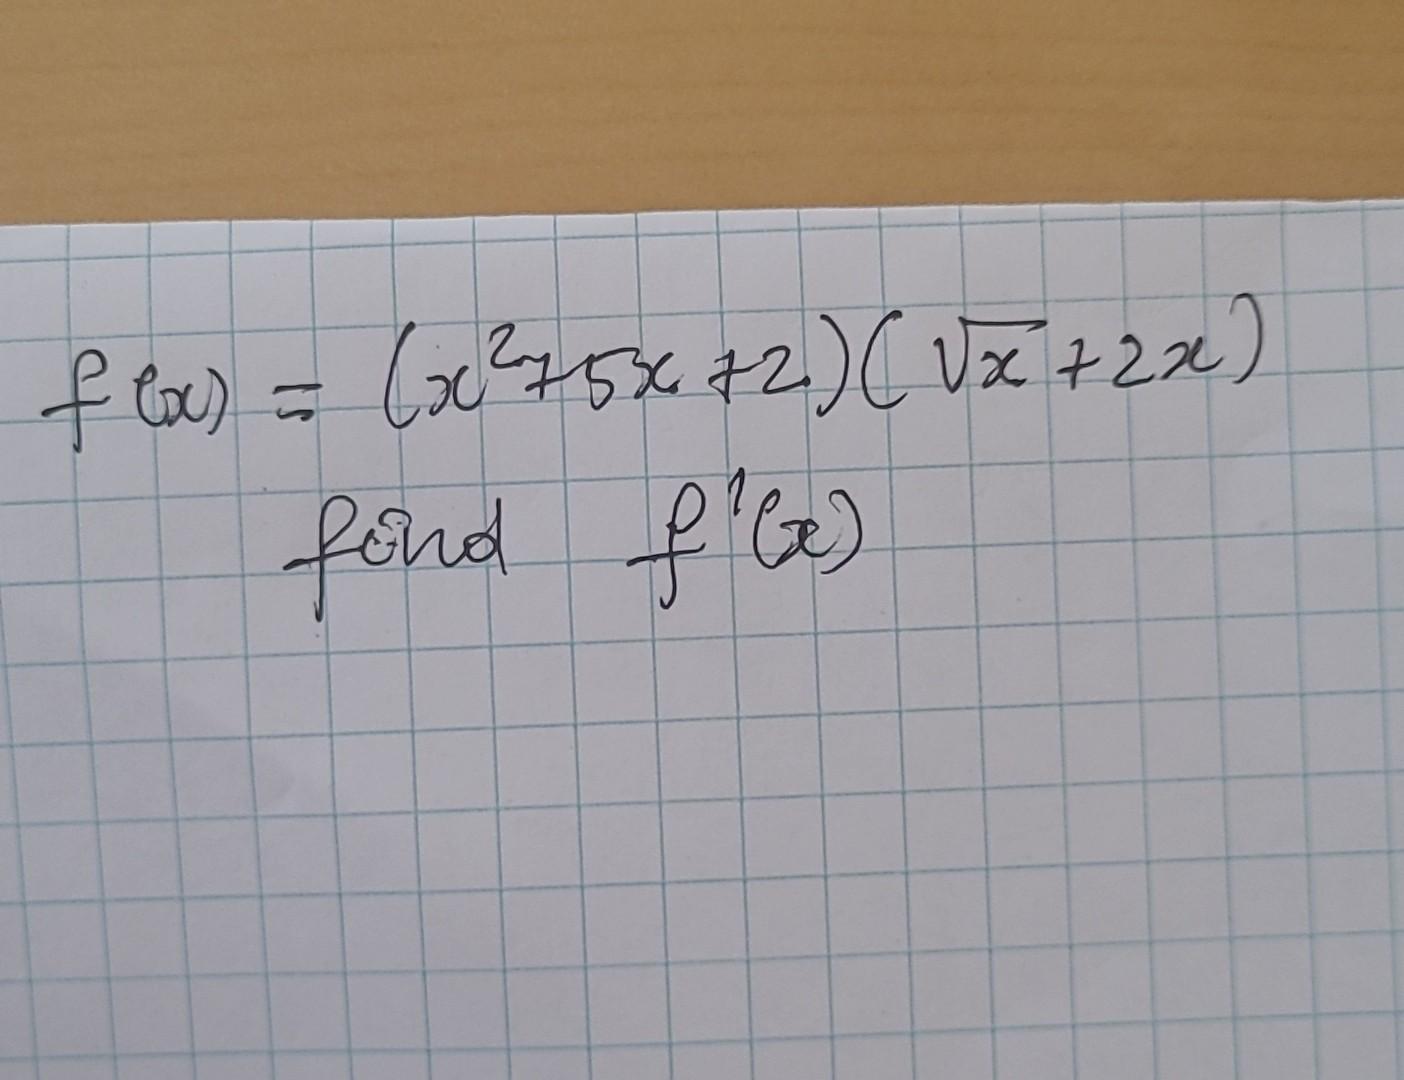 f(x) = (x²+5x+2)(√x+2x)
find f'(x)